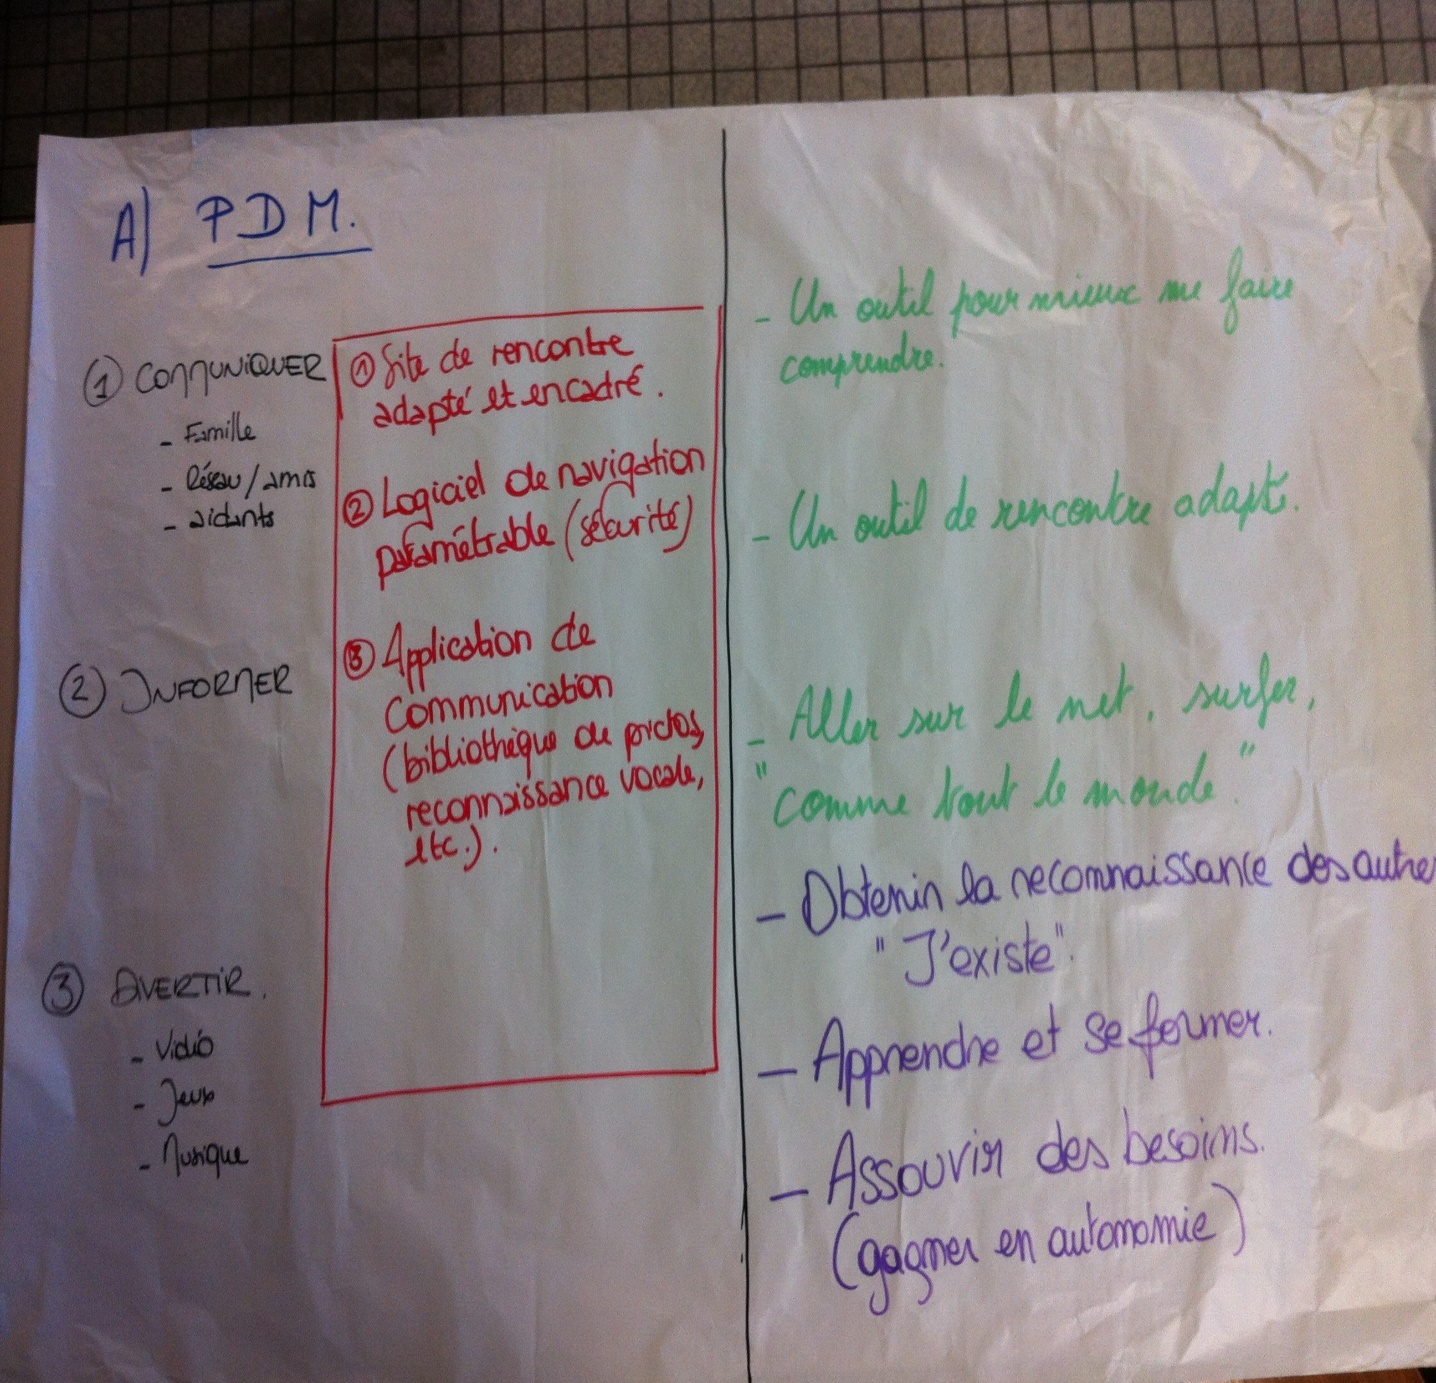 A) PDM.
① COMMUNIQUER
- Famille
- Réseau/amis
- aidants
② INFORMER
③ DIVERTIR.
- Vidéo
- Jeux
- Musique
① Site de rencontre
adapté et encadré.
② Logiciel de navigation
paramétrable (sécurité)
③ Application de
communication
(bibliothèque de pictos,
reconnaissance vocale,
etc.).
- Un outil pour mieux me faire
comprendre.
- Un outil de rencontre adapté.
- Aller sur le net, surfer,
"comme tout le monde."
- Obtenir la reconnaissance des autre
"J'existe".
- Apprendre et se former.
- Assouvir des besoins.
(gagner en autonomie)